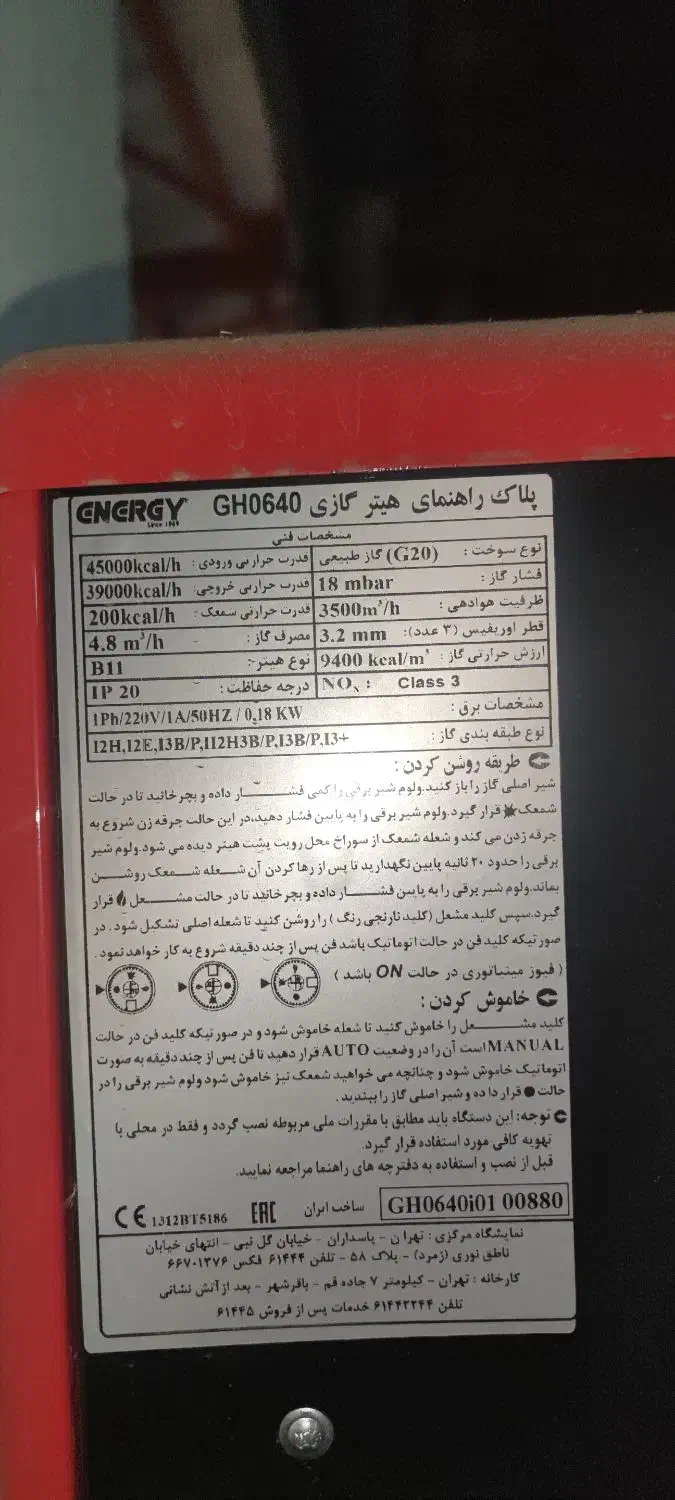 پلاک راهنمای هیتر گازی GH0640 ENERGY Since 1969
مشخصات فنی
نوع سوخت : (G20) گاز طبیعی قدرت حرارتی ورودی : 45000kcal/h
فشار گاز : 18 mbar قدرت حرارتی خروجی : 39000kcal/h
ظرفیت هوادهی : 3500m³/h قدرت حرارتی شمعک : 200kcal/h
قطر اوریفیس (۳ عدد): 3.2 mm مصرف گاز : 4.8 m³/h
ارزش حرارتی گاز : 9400 kcal/m³ نوع هیتر : B11
NOx : Class 3 درجه حفاظت : IP 20
مشخصات برق : 1Ph/220V/1A/50HZ / 0.18 KW
نوع طبقه بندی گاز : I2H,I2E,I3B/P,II2H3B/P,I3B/P,I3+
طریقه روشن کردن :
شیر اصلی گاز را باز کنید.ولوم شیر برقی را کمی فشار داده و بچرخانید تا در حالت
شمعک قرار گیرد.ولوم شیر برقی را به پایین فشار دهید،در این حالت جرقه زن شروع به
جرقه زدن می کند و شعله شمعک از سوراخ محل رویت پشت هیتر دیده می شود.ولوم شیر
برقی را حدود ۲۰ ثانیه پایین نگهدارید تا پس از رها کردن آن شعله شمعک روشن
بماند.ولوم شیر برقی را به پایین فشار داده و بچرخانید تا در حالت مشعل قرار
گیرد.سپس کلید مشعل (کلید نارنجی رنگ) را روشن کنید تا شعله اصلی تشکیل شود . در
صورتیکه کلید فن در حالت اتوماتیک باشد فن پس از چند دقیقه شروع به کار خواهد نمود.
( فیوز مینیاتوری در حالت ON باشد )
خاموش کردن :
کلید مشعل را خاموش کنید تا شعله خاموش شود و در صورتیکه کلید فن در حالت
MANUAL است آن را در وضعیت AUTO قرار دهید تا فن پس از چند دقیقه به صورت
اتوماتیک خاموش شود و چنانچه می خواهید شمعک نیز خاموش شود ولوم شیر برقی را در
حالت ● قرار داده و شیر اصلی گاز را ببندید.
توجه: این دستگاه باید مطابق با مقررات ملی مربوطه نصب گردد و فقط در محلی با
تهویه کافی مورد استفاده قرار گیرد.
قبل از نصب و استفاده به دفترچه های راهنما مراجعه نمایید.
CE 1312BT5186 EAC ساخت ایران GH0640i01 00880
نمایشگاه مرکزی : تهران - پاسداران - خیابان گل نبی - انتهای خیابان
ناطق نوری (زمرد) - پلاک ۵۸ - تلفن ۶۱۴۴۴ فکس ۶۶۷۰۱۳۷۶
کارخانه : تهران - کیلومتر ۷ جاده قم - باقرشهر - بعد از آتش نشانی
تلفن ۶۱۴۴۲۲۴۴ خدمات پس از فروش ۶۱۴۴۵